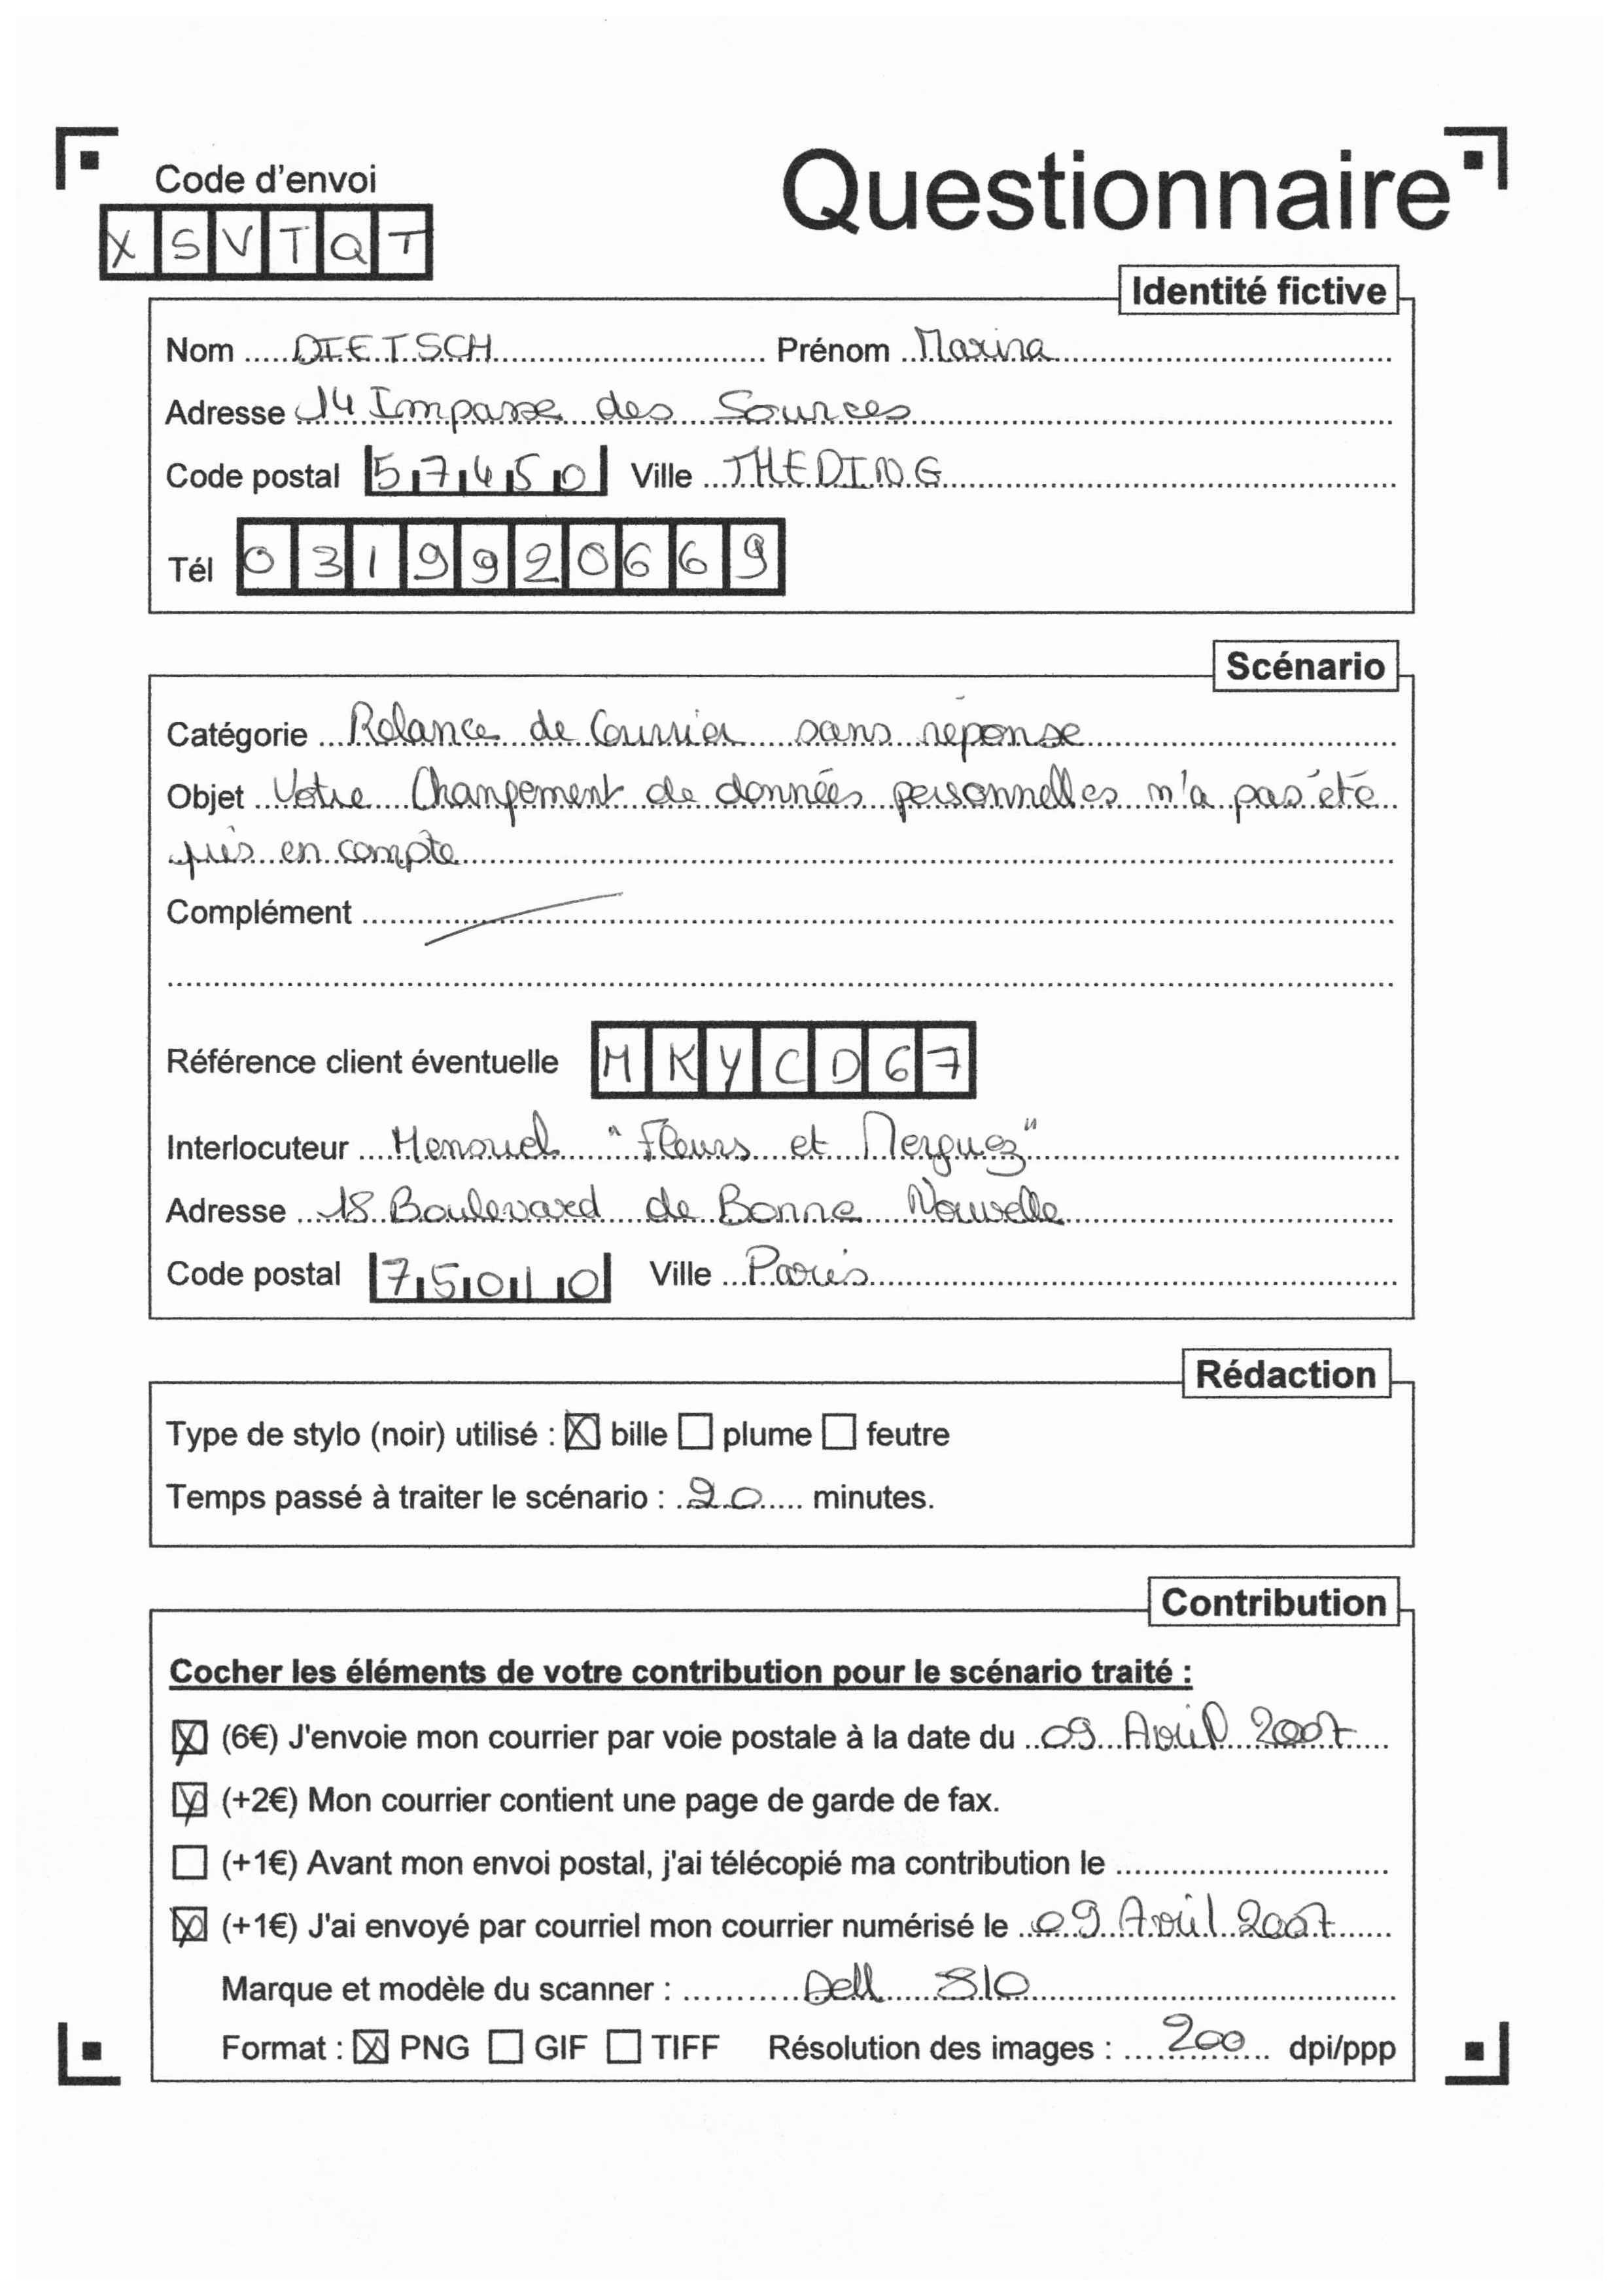 Code d'envoi
Questionnaire
XSVTQT
Identité fictive
Nom DIETSCH Prénom Marina
Adresse 14 Impasse des Sources
Code postal 57450 Ville THEDING
Tél 0319920669
Scénario
Catégorie Relance de Courrier sans réponse
Objet Votre Changement de données personnelles n'a pas été
pris en compte
Complément
Référence client éventuelle MKYCD67
Interlocuteur Mensuel "Fleurs et Merguez"
Adresse 18 Boulevard de Bonne Nouvelle
Code postal 75010 Ville Paris
Rédaction
Type de stylo (noir) utilisé : bille plume feutre
Temps passé à traiter le scénario : 20 minutes.
Contribution
Cocher les éléments de votre contribution pour le scénario traité :
(6€) J'envoie mon courrier par voie postale à la date du 09 Avril 2007
(+2€) Mon courrier contient une page de garde de fax.
(+1€) Avant mon envoi postal, j'ai télécopié ma contribution le
(+1€) J'ai envoyé par courriel mon courrier numérisé le 09 Avril 2007
Marque et modèle du scanner : Dell 810
Format : PNG GIF TIFF Résolution des images : 200 dpi/ppp